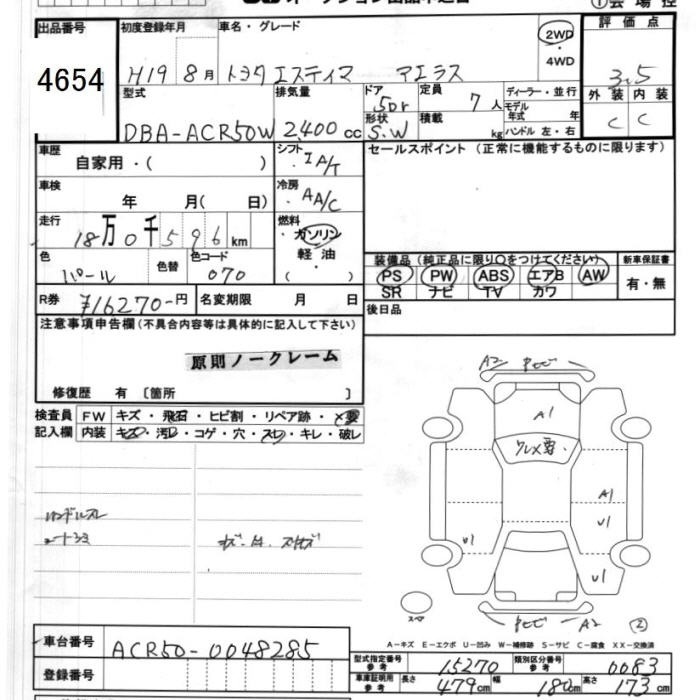 出品番号 初度登録年月 車名・グレード 2WD・4WD 評価点
4654 H19 8月 トヨタ エスティマ アエラス 3.5
型式 排気量 ドア 5Dr 定員 7人 ディーラー・並行 外装 内装
DBA-ACR50W 2,400cc 形状 S.W 積載 kg モデル年式 年式 ハンドル 左・右 C C
車歴 自家用・( ) シフト ・IA/T セールスポイント (正常に機能するものに限ります)
車検 年 月( 日) 冷房 ・AA/C
走行 18万0千596km 燃料 ・ガソリン 軽油・( )
色 パール 色替 色コード 070 装備品(純正品に限り○をつけてください) 新車保証書
PS PW ABS エアB AW 有・無
SR ナビ TV カワ
R券 ¥16270-円 名変期限 月 日 後日品
注意事項申告欄(不具合内容等は具体的に記入して下さい)
原則ノークレーム
修復歴 有 〔箇所 〕
検査員 FW キズ・飛石・ヒビ割・リペア跡・×要
記入欄 内装 キズ・汚レ・コゲ・穴・スレ・キレ・破レ
ハンドルスレ
シートシミ
A2 キヒ
A1
ワレ×要
A1
U1
U1
U1
スペア
キヒ A2
A-キズ E-エクボ U-凹み W-補修跡 S-サビ C-腐食 XX-交換済
車台番号 ACR50-0048285
型式指定番号 参考 15270 類別区分番号 参考 0083
登録番号 車庫証明用 参考 長さ 479cm 幅 180cm 高さ 173cm